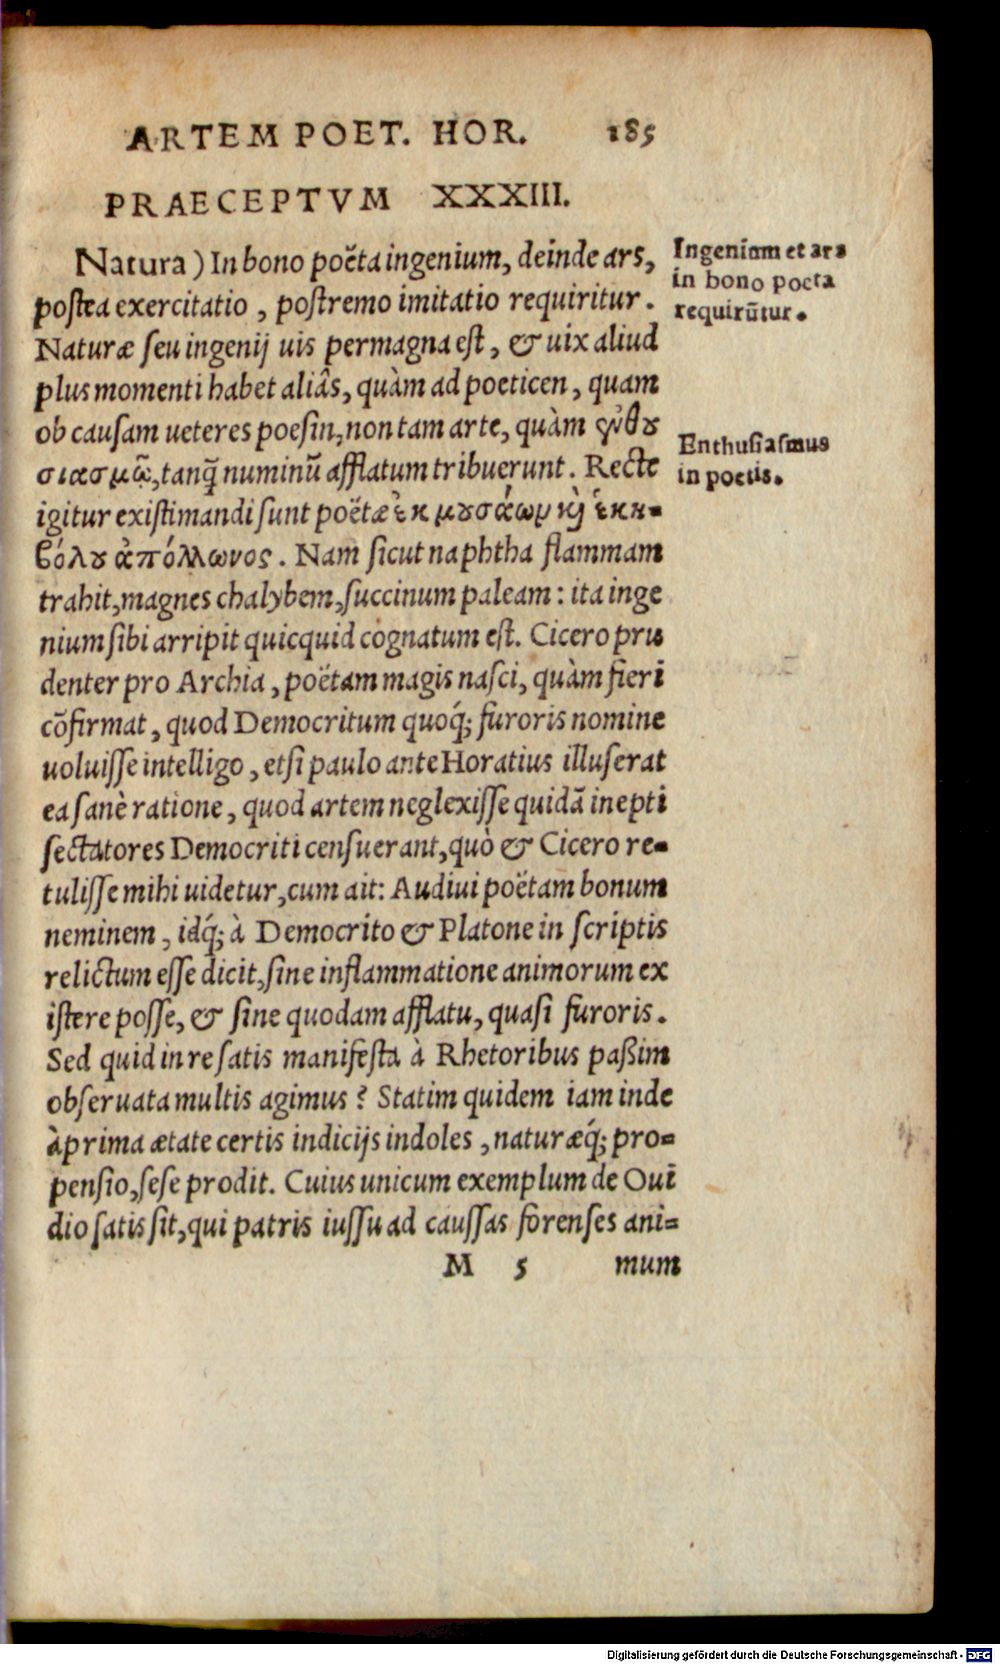 ARTEM POET. HOR. 185
PRAECEPTVM XXXIII.
Natura) In bono poëta ingenium, deinde ars,
postea exercitatio, postremo imitatio requiritur.
Naturæ seu ingenij uis permagna est, & uix aliud
plus momenti habet aliâs, quàm ad poeticen, quam
ob causam ueteres poesin, non tam arte, quàm ἐνθου
σιασμῷ, tanq̃ numinũ afflatum tribuerunt. Recte
igitur existimandi sunt poëtæ ἐκ μουσάων καὶ ἑκη-
βόλου ἀπόλλωνος. Nam sicut naphtha flammam
trahit, magnes chalybem, succinum paleam: ita inge
nium sibi arripit quicquid cognatum est. Cicero pru
denter pro Archia, poëtam magis nasci, quàm fieri
cõfirmat, quod Democritum quoq́; furoris nomine
uoluisse intelligo, etsi paulo ante Horatius illuserat
ea sanè ratione, quod artem neglexisse quidã inepti
sectatores Democriti censuerant, quò & Cicero re-
tulisse mihi uidetur, cum ait: Audiui poëtam bonum
neminem, idq́; à Democrito & Platone in scriptis
relictum esse dicit, sine inflammatione animorum ex
istere posse, & sine quodam afflatu, quasi furoris.
Sed quid in re satis manifesta à Rhetoribus paßim
obseruata multis agimus? Statim quidem iam inde
à prima ætate certis indicijs indoles, naturæq́; pro-
pensio, sese prodit. Cuius unicum exemplum de Oui
dio satis sit, qui patris iussu ad caussas forenses ani-
M 5 mum
Ingenium et ars
in bono poeta
requirũtur.
Enthusiasmus
in poetis.
Digitalisierung gefördert durch die Deutsche Forschungsgemeinschaft - DFG